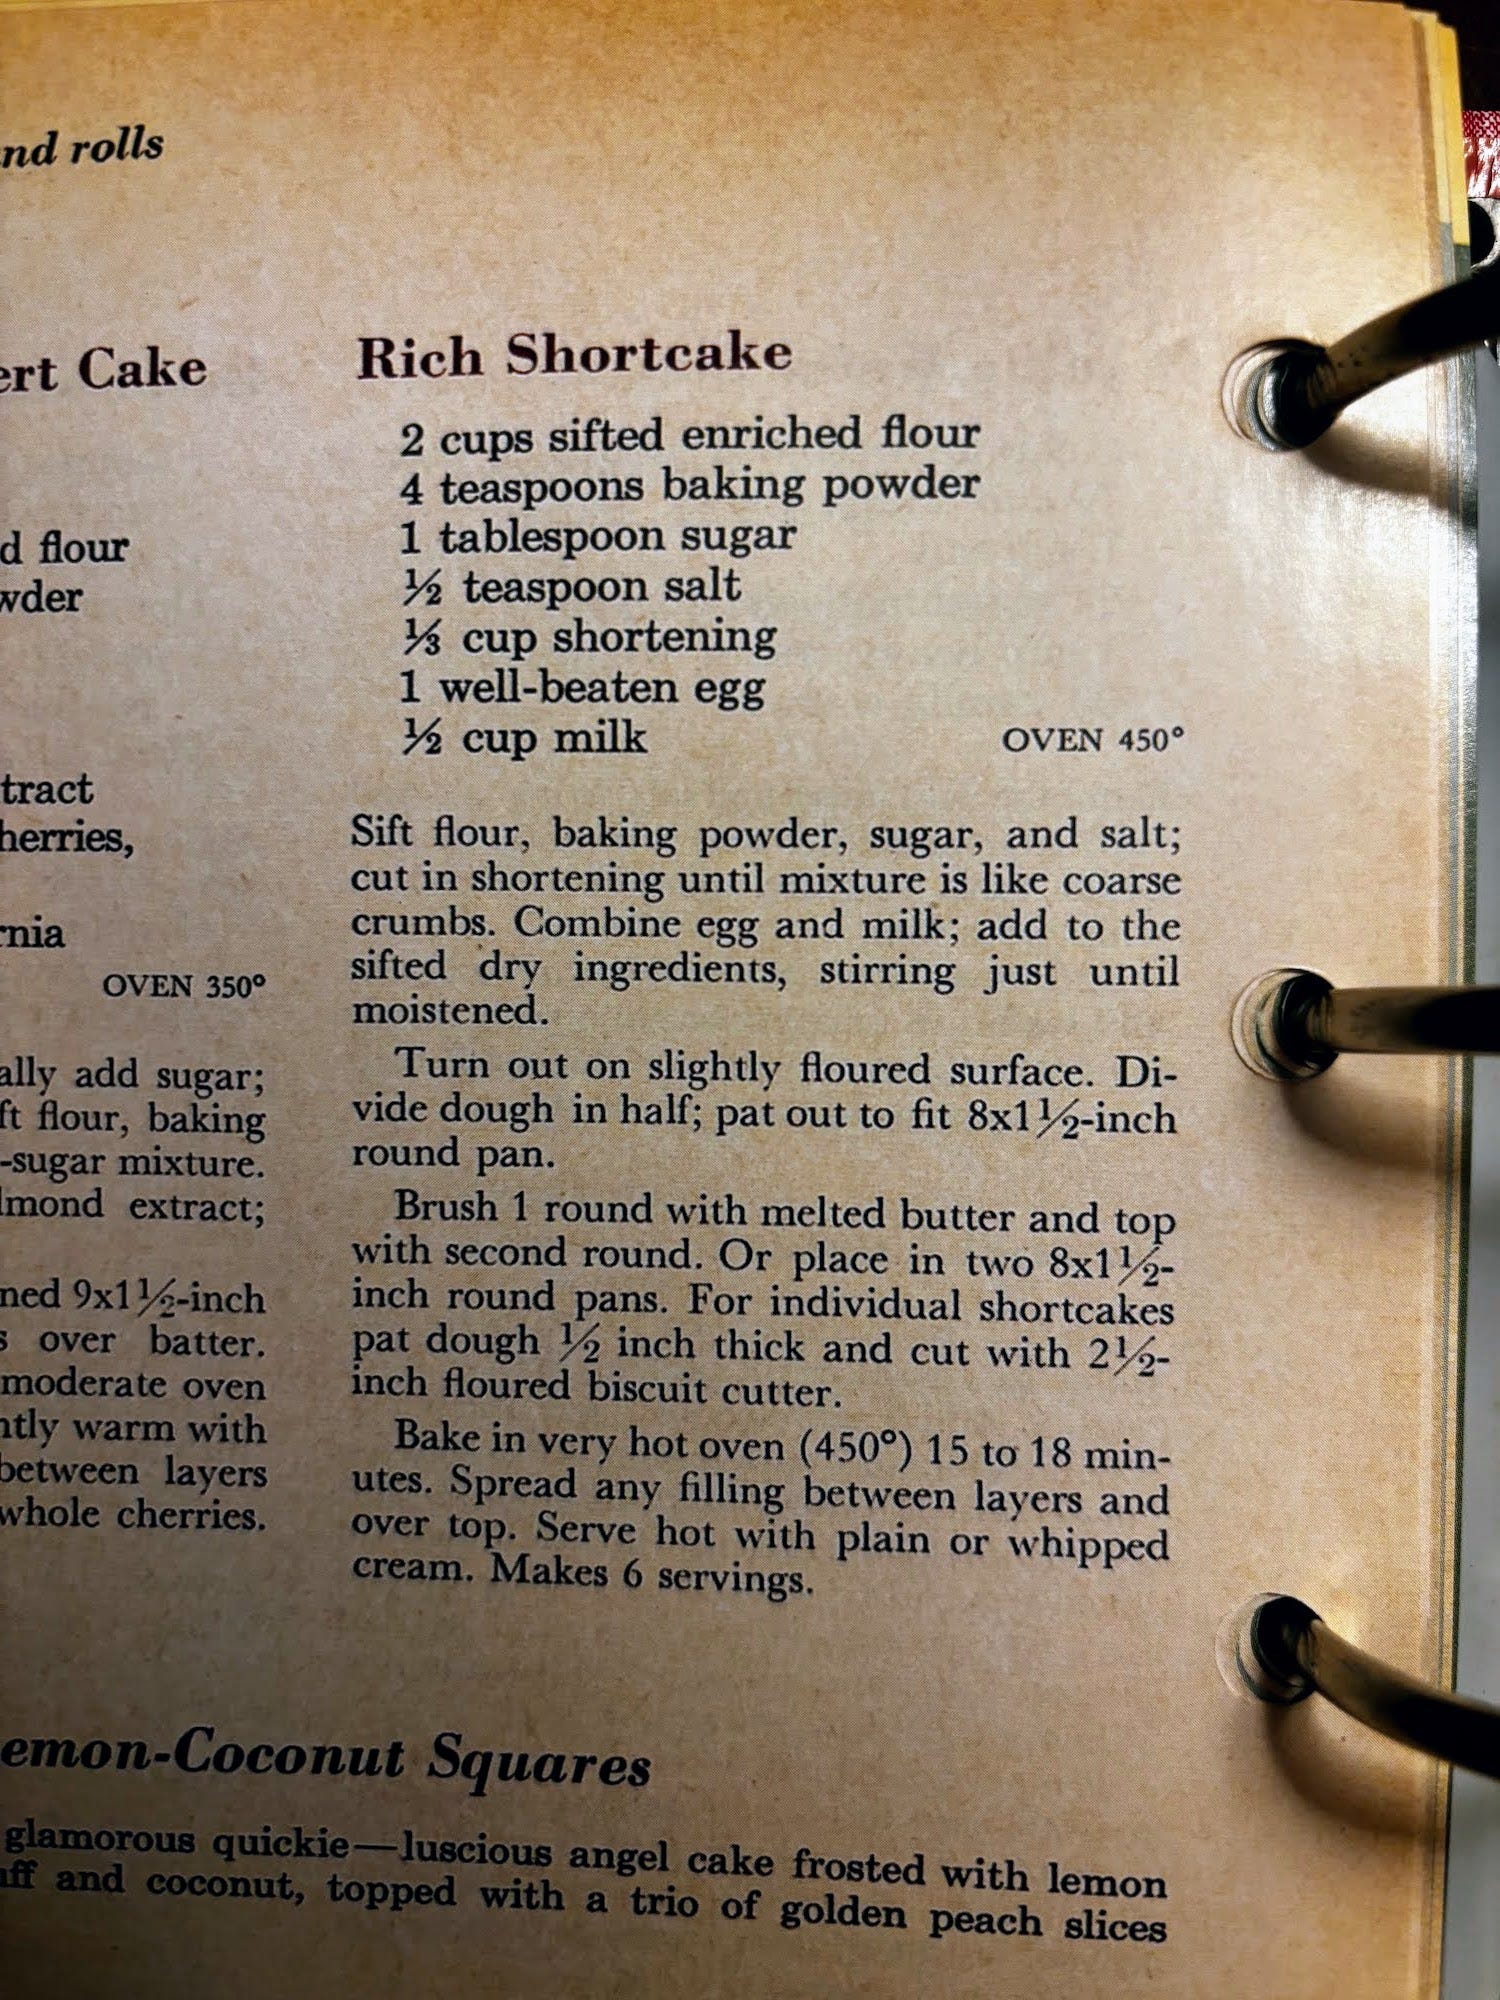 nd rolls
ert Cake
d flour
wder
tract
herries,
rnia
OVEN 350°
ally add sugar;
ft flour, baking
-sugar mixture.
lmond extract;
ned 9x1½-inch
s over batter.
moderate oven
ntly warm with
between layers
whole cherries.
Rich Shortcake
2 cups sifted enriched flour
4 teaspoons baking powder
1 tablespoon sugar
½ teaspoon salt
⅓ cup shortening
1 well-beaten egg
½ cup milk
OVEN 450°
Sift flour, baking powder, sugar, and salt;
cut in shortening until mixture is like coarse
crumbs. Combine egg and milk; add to the
sifted dry ingredients, stirring just until
moistened.
Turn out on slightly floured surface. Di-
vide dough in half; pat out to fit 8x1½-inch
round pan.
Brush 1 round with melted butter and top
with second round. Or place in two 8x1½-
inch round pans. For individual shortcakes
pat dough ½ inch thick and cut with 2½-
inch floured biscuit cutter.
Bake in very hot oven (450°) 15 to 18 min-
utes. Spread any filling between layers and
over top. Serve hot with plain or whipped
cream. Makes 6 servings.
emon-Coconut Squares
glamorous quickie—luscious angel cake frosted with lemon
uff and coconut, topped with a trio of golden peach slices